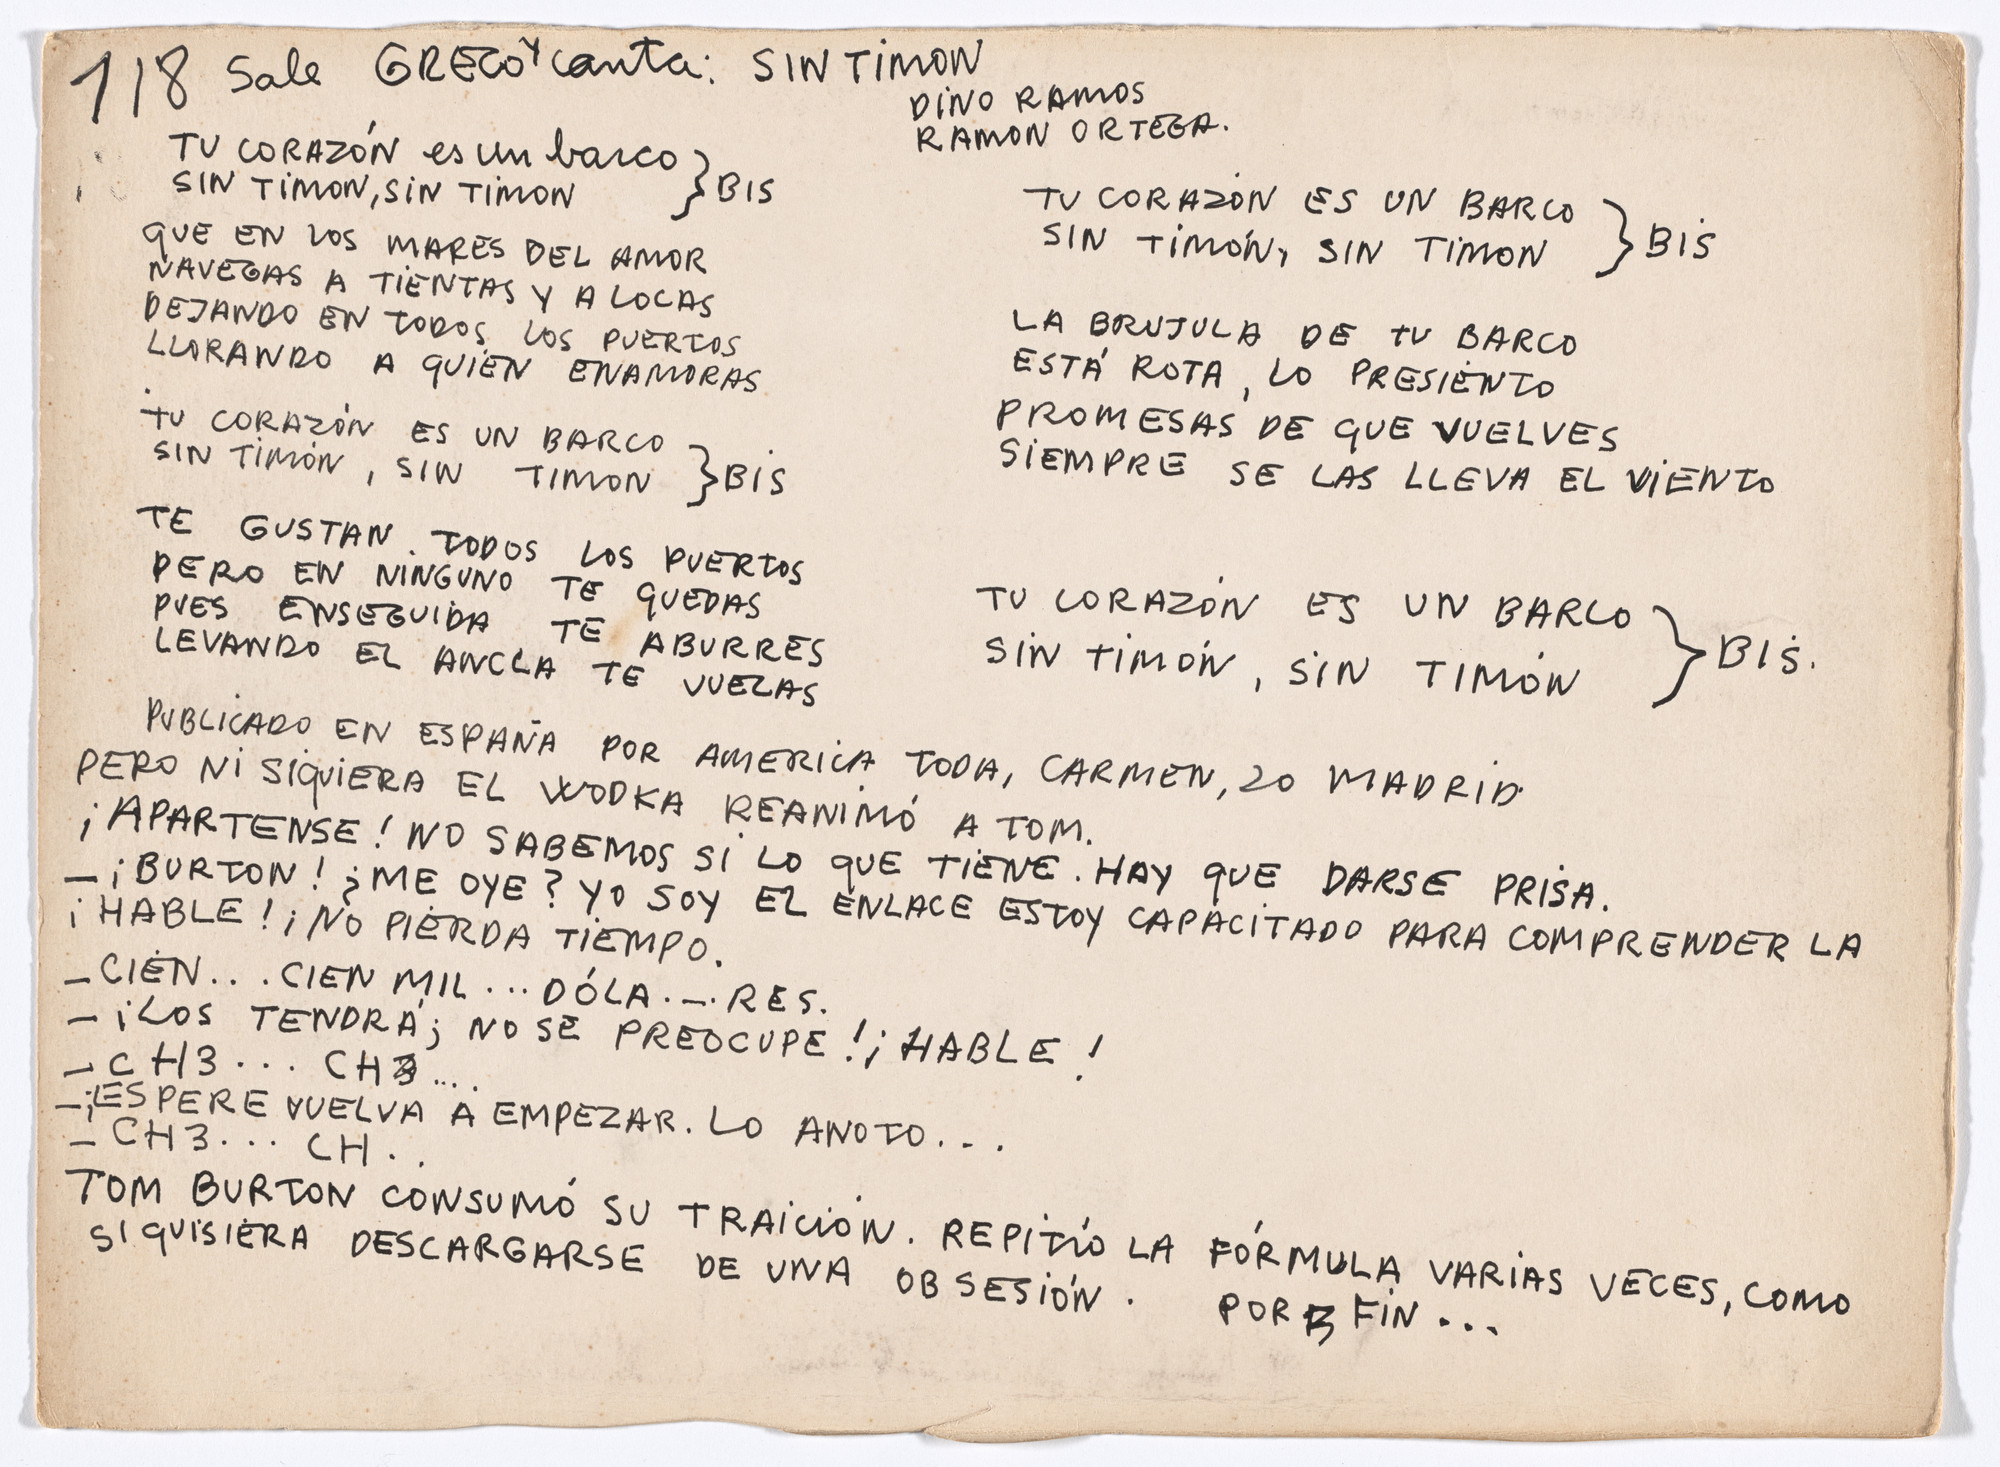 118 Sale GRECO Y canta: SIN TIMON
DINO RAMOS
RAMON ORTEGA.
TU CORAZÓN es un barco
SIN TIMON, SIN TIMON } BIS
QUE EN LOS MARES DEL AMOR
NAVEGAS A TIENTAS Y A LOCAS
DEJANDO EN TODOS LOS PUERTOS
LLORANDO A QUIEN ENAMORAS
TU CORAZÓN ES UN BARCO
SIN TIMÓN, SIN TIMON } BIS
TE GUSTAN TODOS LOS PUERTOS
PERO EN NINGUNO TE QUEDAS
PUES ENSEGUIDA TE ABURRES
LEVANDO EL ANCLA TE VUELAS
TU CORAZÓN ES UN BARCO
SIN TIMÓN, SIN TIMON } BIS
LA BRUJULA DE TU BARCO
ESTÁ ROTA, LO PRESIENTO
PROMESAS DE QUE VUELVES
SIEMPRE SE LAS LLEVA EL VIENTO
TU CORAZÓN ES UN BARCO
SIN TIMÓN, SIN TIMÓN } BIS.
PUBLICADO EN ESPAÑA POR AMERICA TODA, CARMEN, 20 MADRID
PERO NI SIQUIERA EL WODKA REANIMÓ A TOM.
¡APARTENSE! NO SABEMOS SI LO QUE TIENE. HAY QUE DARSE PRISA.
—¡BURTON! ¿ME OYE? YO SOY EL ENLACE ESTOY CAPACITADO PARA COMPRENDER LA
¡HABLE! ¡NO PIERDA TIEMPO.
—CIEN... CIEN MIL... DÓLA.—.RES.
—¡LOS TENDRÁ; NO SE PREOCUPE! ¡HABLE!
—CH3... CH3....
—¡ESPERE VUELVA A EMPEZAR. LO ANOTO...
—CH3... CH..
TOM BURTON CONSUMÓ SU TRAICIÓN. REPITIÓ LA FÓRMULA VARIAS VECES, COMO
SI QUISIERA DESCARGARSE DE UNA OBSESIÓN. POR FIN...